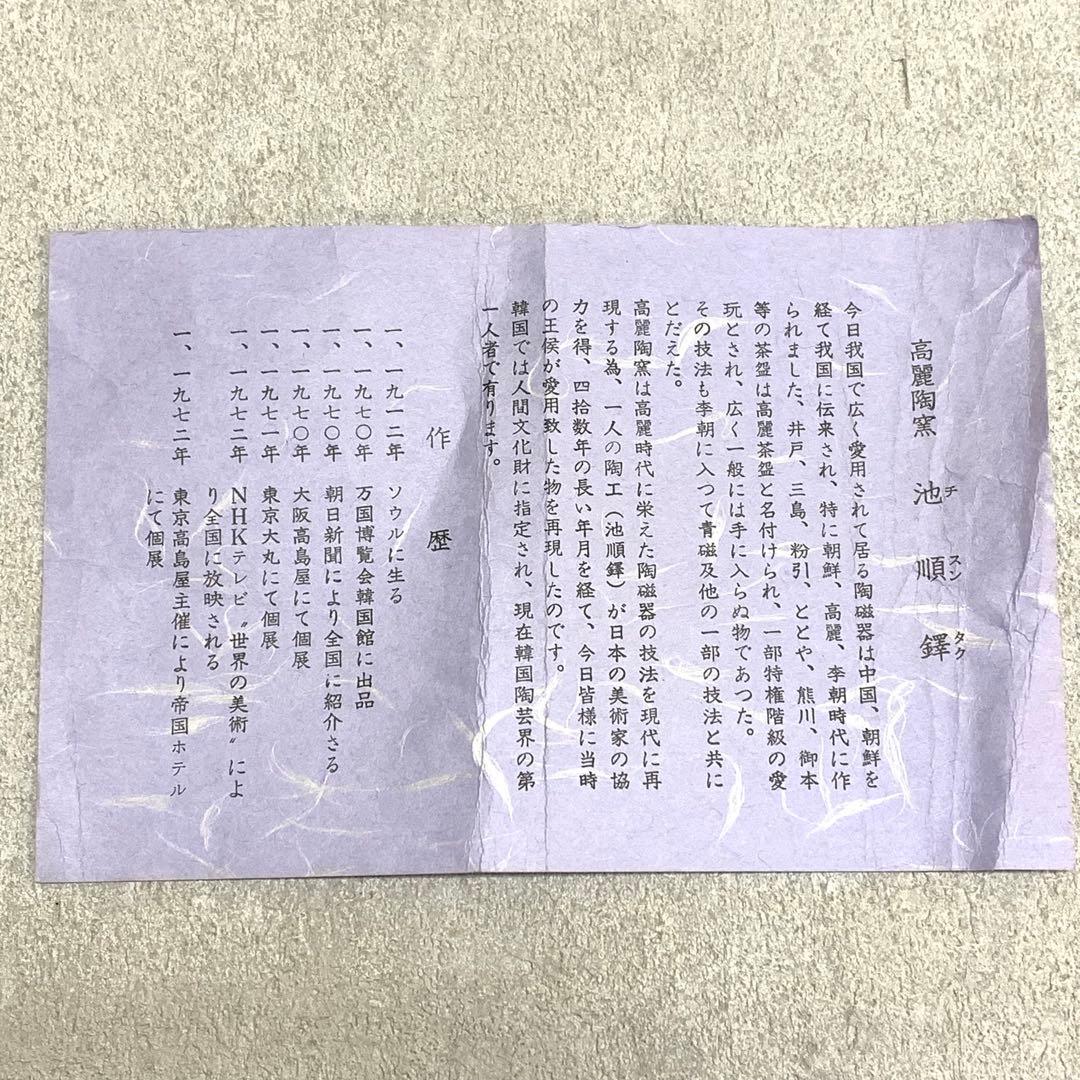 高麗陶窯 池順鐸
チ スン タク
今日我国で広く愛用されて居る陶磁器は中国、朝鮮を
経て我国に伝来され、特に朝鮮、高麗、李朝時代に作
られました、井戸、三島、粉引、ととや、熊川、御本
等の茶盌は高麗茶盌と名付けられ、一部特権階級の愛
玩とされ、広く一般には手に入らぬ物であつた。
その技法も李朝に入つて青磁及他の一部の技法と共に
とだえた。
高麗陶窯は高麗時代に栄えた陶磁器の技法を現代に再
現する為、一人の陶工(池順鐸)が日本の美術家の協
力を得、四拾数年の長い年月を経て、今日皆様に当時
の王侯が愛用致した物を再現したのです。
韓国では人間文化財に指定され、現在韓国陶芸界の第
一人者で有ります。
作歴
一、一九一二年 ソウルに生る
一、一九七〇年 万国博覧会韓国館に出品
一、一九七〇年 朝日新聞により全国に紹介さる
一、一九七〇年 大阪高島屋にて個展
一、一九七一年 東京大丸にて個展
一、一九七二年 NHKテレビ〝世界の美術〟によ
り全国に放映される
一、一九七二年 東京高島屋主催により帝国ホテル
にて個展